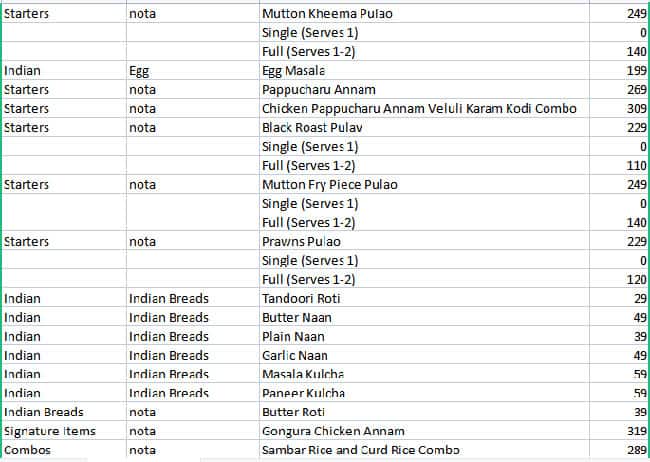 Starters nota Mutton Kheema Pulao 249
Single (Serves 1) 0
Full (Serves 1-2) 140
Indian Egg Egg Masala 199
Starters nota Pappucharu Annam 269
Starters nota Chicken Pappucharu Annam Veluli Karam Kodi Combo 309
Starters nota Black Roast Pulav 229
Single (Serves 1) 0
Full (Serves 1-2) 110
Starters nota Mutton Fry Piece Pulao 249
Single (Serves 1) 0
Full (Serves 1-2) 140
Starters nota Prawns Pulao 229
Single (Serves 1) 0
Full (Serves 1-2) 120
Indian Indian Breads Tandoori Roti 29
Indian Indian Breads Butter Naan 49
Indian Indian Breads Plain Naan 39
Indian Indian Breads Garlic Naan 49
Indian Indian Breads Masala Kulcha 59
Indian Indian Breads Paneer Kulcha 59
Indian Breads nota Butter Roti 39
Signature Items nota Gongura Chicken Annam 319
Combos nota Sambar Rice and Curd Rice Combo 289